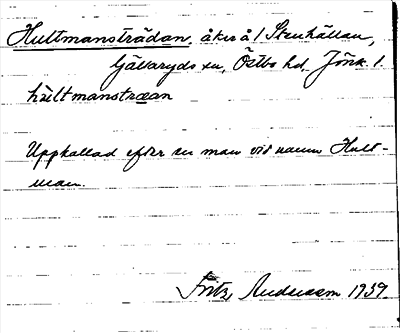 Hultmansträdan, åker å 1 Stenhällan,
Gällaryds sn, Östbo hd, Jönk. l.
hùltmanstræan
Uppkallad efter en man vid namn Hult-
man.
Fritz Andersson 1939.